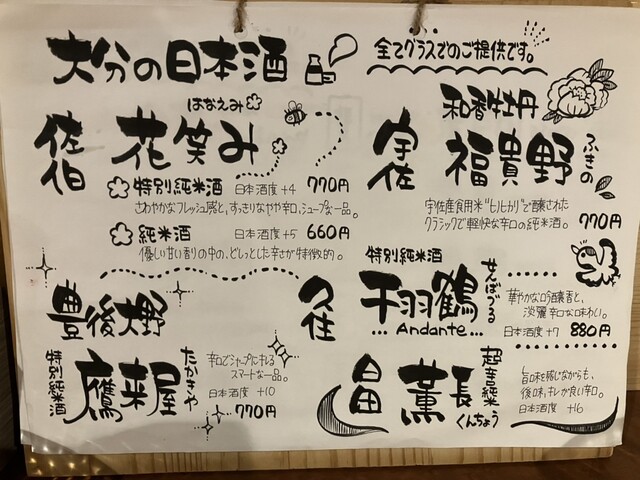 大分の日本酒
全てグラスでのご提供です。
佐伯
はなえみ
花笑み
特別純米酒 日本酒度+4 770円
さわやかなフレッシュ感と、すっきりなやや辛口、シャープな一品。
純米酒 日本酒度+5 660円
優しい甘い香りの中の、どしっとした辛さが特徴的。
宇佐
和香牡丹
福貴野
ふきの
宇佐産食用米"ヒノヒカリ"で醸された
クラシックで軽快な辛口の純米酒。
770円
豊後大野
特別純米酒
鷹来屋
たかきや
辛口でシャープにキレる
スマートな一品。
日本酒度 +10
770円
久住
特別純米酒
千羽鶴
せんばづる
... Andante ...
華やかな吟醸香と、
淡麗辛口な味わい。
日本酒度 +7 880円
日田
薫長
くんちょう
超辛純米
旨味を感じながらも、
後味、キレが良い辛口。
日本酒度 +16